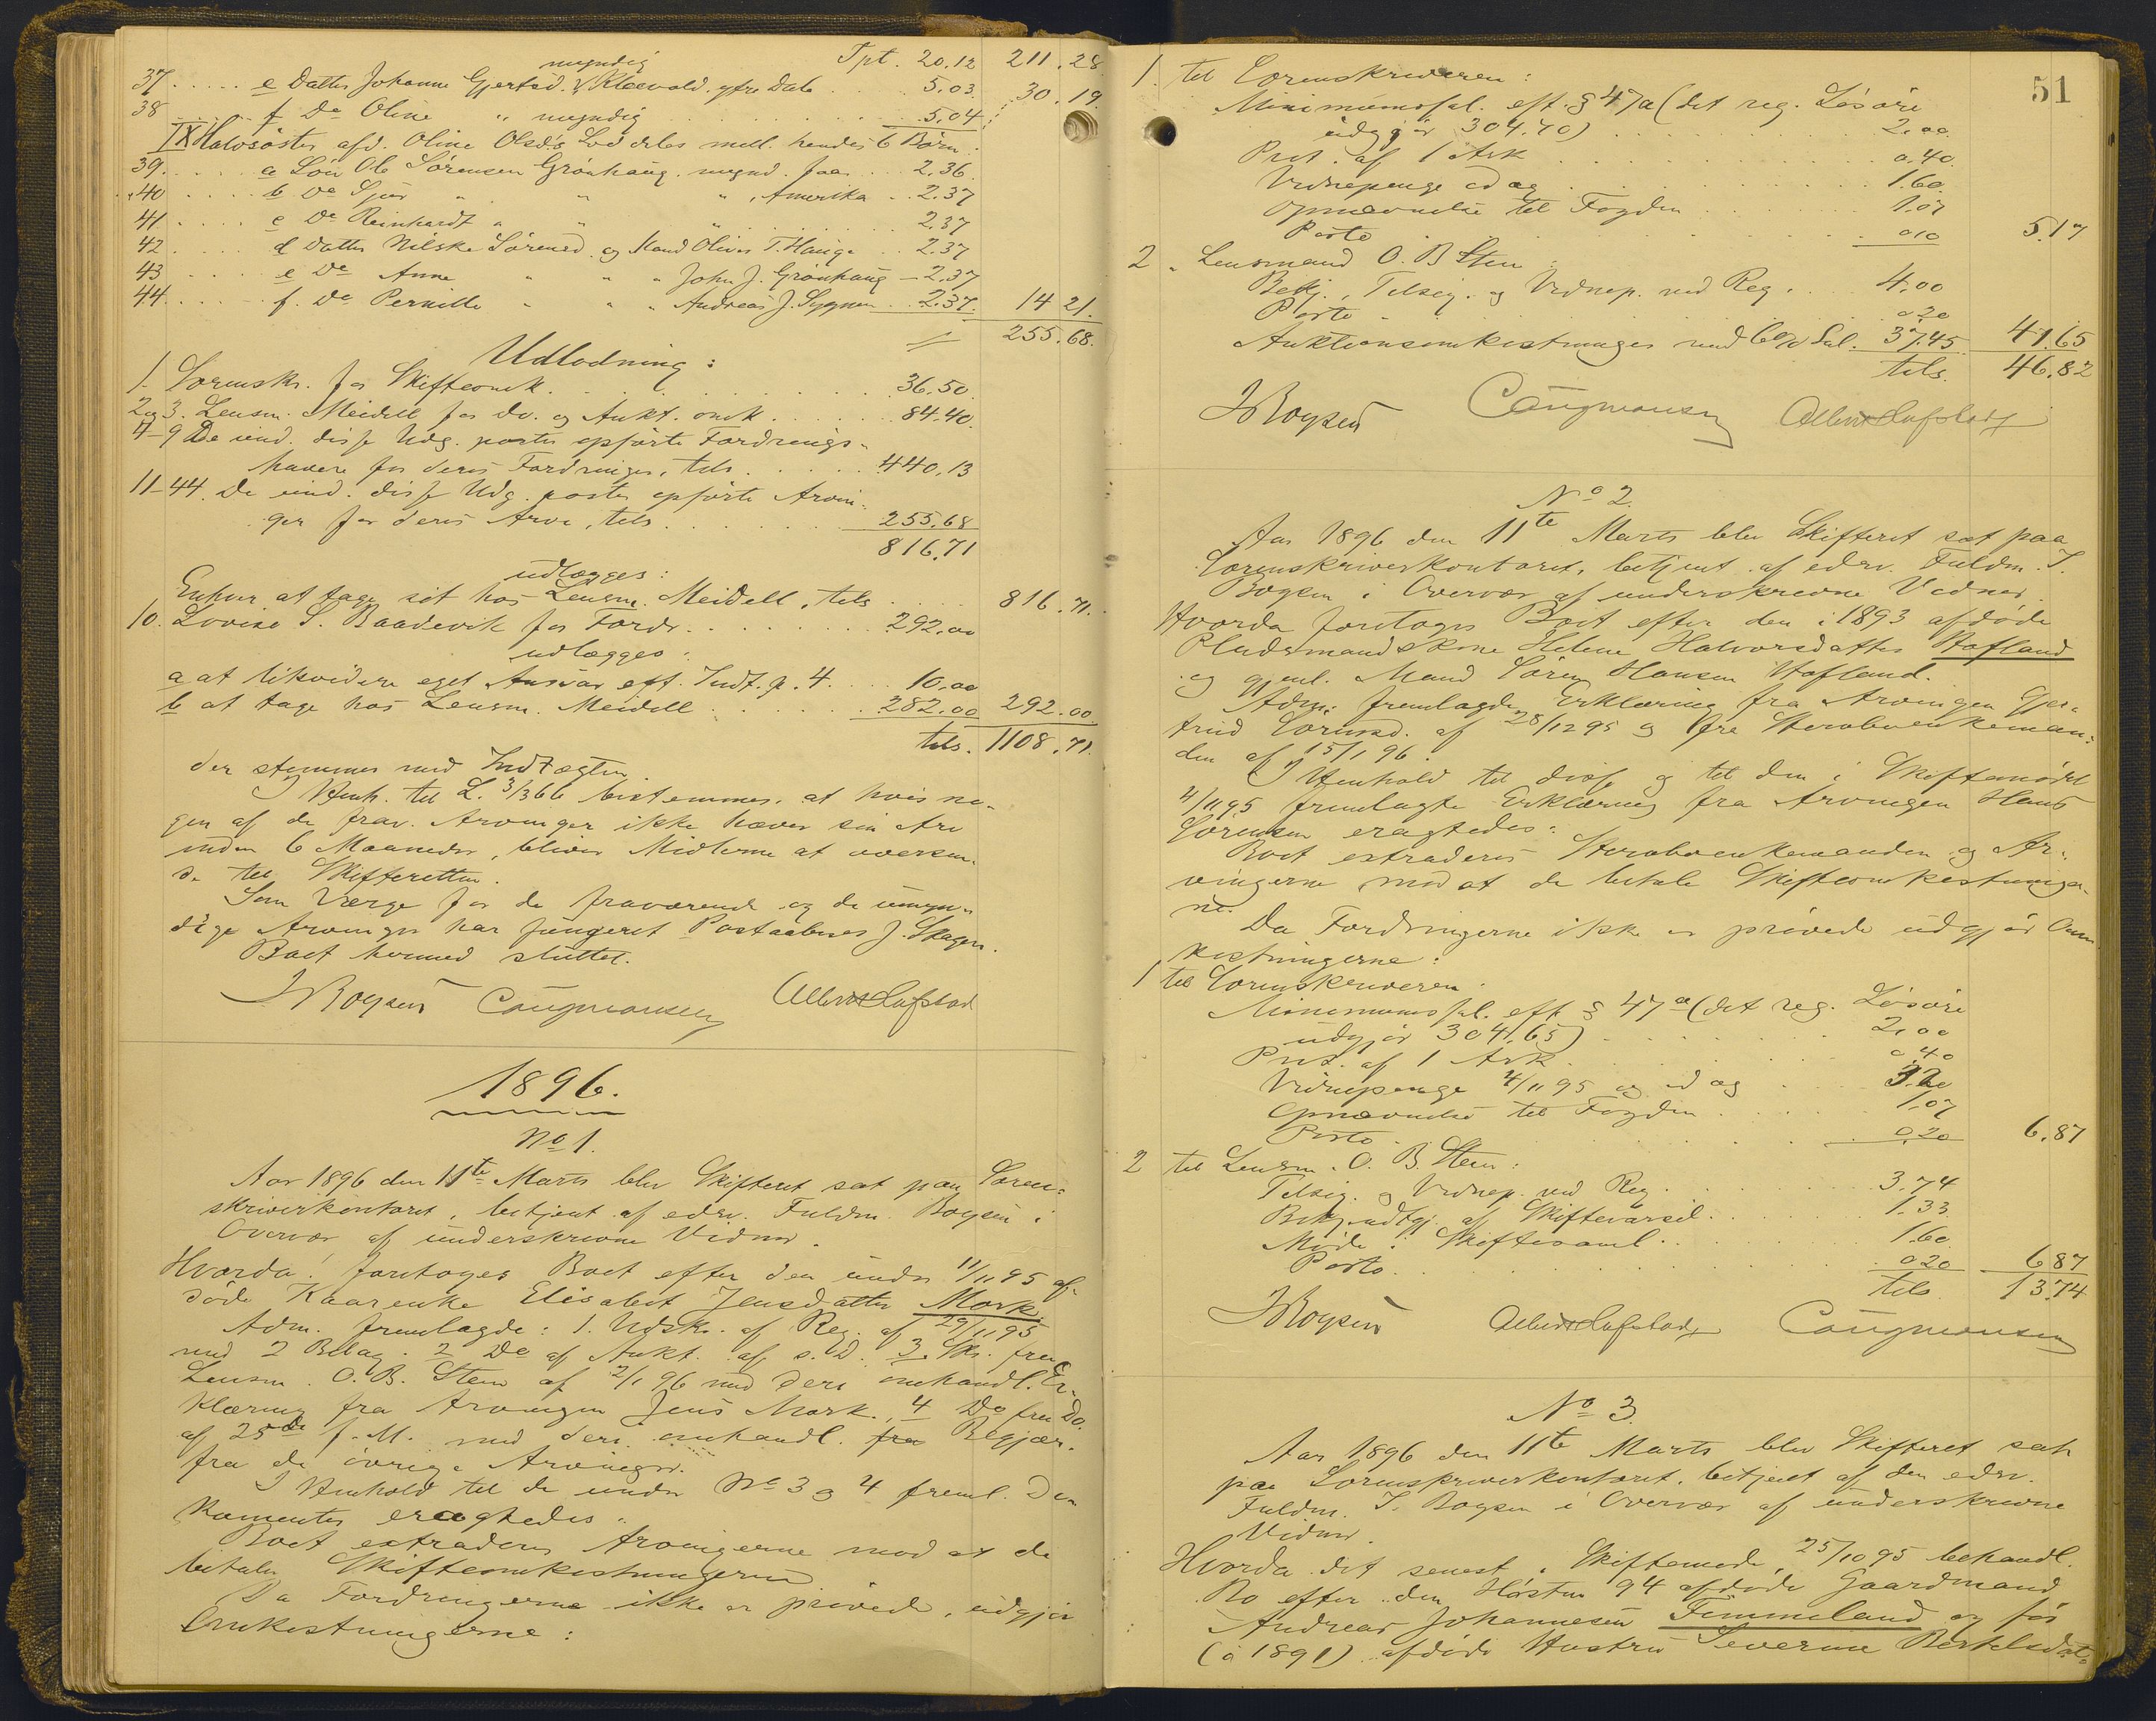 Tpt. 20.12 211.28
myndig
37 ..... e Datter Johanne Gjertsd. Kleevold. ytre Dale . . 5.03
38 ..... f Do Oline " myndig ........ 5.04 30.19.
IX Halvsöster afd. Oline Olsd's Lod deles mell. hendes 6 Börn:
39. .... a Sön Ole Sörensen Grönhaug. mynd. faar ... 2.36
40 .... b Do Sjur " " ", Amerika .. 2.37
41 .... c Do Reinhardt " " " ...... 2.37
42 .... d Datter Nilske Sörensd. og Mand Oliver T. Hauge .. 2.37
43 .... e Do Anne " " " John J. Grönhaug - 2.37
44 ..... f. Do Pernille " " " Andreas J. Sygnen ... 2.37. 14 21.
255.68.
Udlodning:
1. Sorenskr. for Skifteomk. ....... 36.50.
2 og 3. Lensm. Meidell for Do. og Aukt. omk. ..... 84.40.
4-9 De und. disse Udg. poster opförte Fordrings-
havere for deres Fordringer, tils. ..... 440.13
11-44. De und. disse Udg. poster opförte Arvin-
ger for deres Arve, tils. ...... 255.68
816.71
udlægges:
Enhver at tage sit hos Lensm. Meidell, tils .... 816.71.
10. Lovise S. Baadevik for Fordr. ....... 292.00
udlægges:
a at likvidere eget Ansvar eft. Indt. p. 4. ... 10.00
b at tage hos Lensm. Meidell ...... 282.00 292.00
tils. 1108.71.
der stemmer med Indtægten.
I Henh. til L. 3/3 66 bestemmes, at hvis no-
gen af de frav. Arvinger ikke hæver sin Arv
inden 6 Maaneder, bliver Midlerne at oversen-
de til Skifteretten.
Som Værge for de fraværende og de umyn-
dige Arvinger har fungeret Postaabner J. Skagen.
Boet hermed sluttet.
J Boysen Albert Lufstad
1896.
No 1.
Aar 1896 den 11te Marts blev Skifteret sat paa Soren-
skriverkontoret, betjent af edsv. Fuldm. Boysen i
Overvær af underskrevne Vidner.
Hvorda! foretoges Boet efter den under 11/11 95 af-
döde Kaarenke Elisabet Jensdatter Mork
Adm. fremlagde: 1. Udskr. af Reg. af 29/11 95
med 2 Bilag. 2 Do af Aukt. af s. D. 3. Skr. fra
Lensm. O. B. Steen af 2/1 96 med deri omhandl. Er-
klæring fra Arvingen Jens Mork., 4 Do fra Do.
af 25de f. M. med deri omhandl. fra Begjær.
fra de övrige Arvinger.
I Henhold til de under No 3 og 4 freml. Do-
kumenter eragtedes:
Boet extraderes Arvingerne mod at de
betaler Skifteomkostningerne
Da Fordringerne ikke er prövede, udgjör
Omkostningerne:
51
1. til Sorenskriveren:
Minimumssal. eft. § 47a (det reg. Lösöre
udgjör 304.40) ....... 2.00.
Prot. af 1 Ark ......... 0.40.
Vidnepenge idag ........ 1.60.
Opnævnelse til Fogden ...... 1.07
Porto ........ 0.10 5.17
2 " Lensmand O. B Steen:
Bekj., Tilsig. og Vidnep. ved Reg. .. 4.00
Porto ........ 0.20
Auktionsomkostninger med 6% Sal. 37.45 41.65
tils. 46.82
J Boysen Albert Lufstad
No 2.
Aar 1896 den 11te Marts blev Skifteret sat paa
Sorenskriverkontoret, betjent af edsv. Fuldm. J.
Boysen i Overvær af underskrevne Vidner.
Hvorda foretoges Boet efter den i 1893 afdöde
Pladsmandskone Helene Halvorsdatter Hafland
og gjenl. Mand Sören Hansen Hafland.
Adm. fremlagde Erklæring fra Arvingen Gjer-
trud Sörensd. af 28/12 95 og fra Stervboenkeman-
den af 15/1 96.
I Henhold til disse og til den i Skiftemödet
4/11 95 fremlagte Erklæring fra Arvingen Hans
Sörensen eragtedes:
Boet extraderes Stervboenkemanden og Ar-
vingerne mod at de betale Skifteomkostninger-
ne.
Da Fordringerne ikke er prövede udgjör Om-
kostningerne:
1 til Sorenskriveren:
Minimumssal. eft § 47a (det reg. Lösöre
udgjör 304,65) ...... 2,00
Prot. af 1 Ark ......... 0.40
Vidnepenge 4/11 95 og idag .... 3.20
Opnævnelse til Fogden ..... 1.07
Porto .......... 0.20 6.87
2 til Lensm. O. B. Steen:
Tilsig. og Vidnep. ved Reg. ...... 3.74
Bekjendtgj. af Skiftevarsel ...... 1.33
Möde i Skiftesaml. ....... 1.60
Porto ........... 0.20 6 87
tils. 13.74
J Boysen Albert Lufstad
No 3.
Aar 1896 den 11te Marts blev Skifteret sat
paa Sorenskriverkontoret, betjent af den edsv.
Fuldm. J. Boysen i Overvær af underskrevne
Vidner.
Hvorda det senest i Skiftemöde 25/10 95 behandl.
Bo efter den Hösten 94 afdöde Gaardmand
Andreas Johannesen Timmeland og för
(i 1891) afdöde Hustru Severine Bertelsdat-